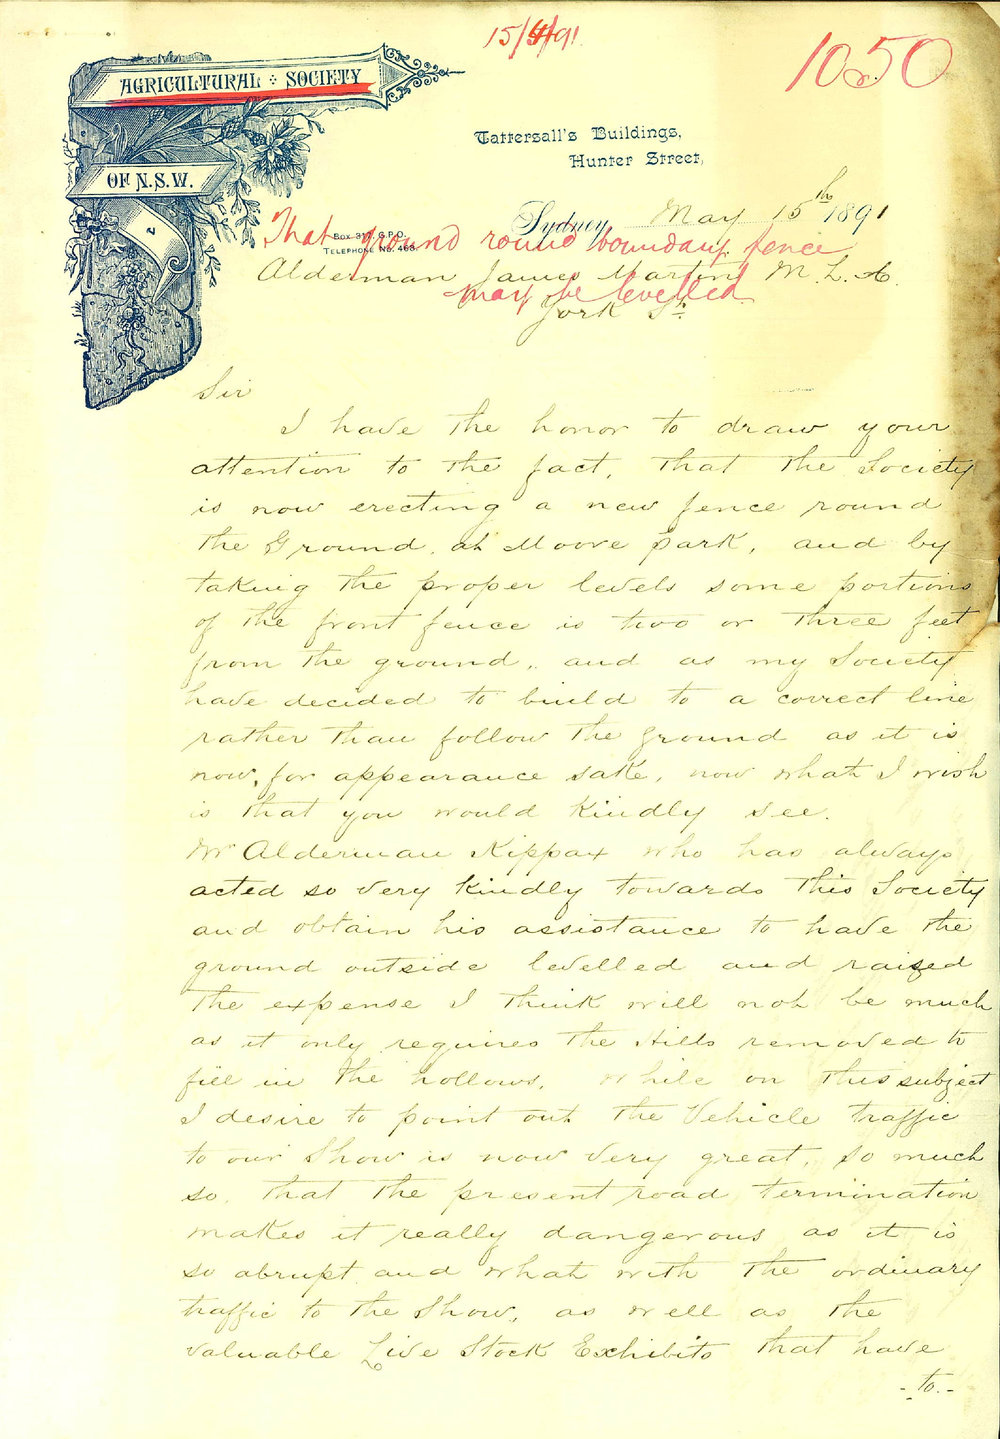 15/5/91
1050
AGRICULTURAL SOCIETY
OF N.S.W.
Tattersall's Buildings,
Hunter Street,
Sydney May 15th 1891
BOX 317, G.P.O.
TELEPHONE No. 468.
That ground round boundary fence
may be levelled
Alderman James Martin M.L.A.
York St.
Sir
I have the honor to draw your
attention to the fact, that the Society
is now erecting a new fence round
the Ground, at Moore Park, and by
taking the proper levels some portions
of the front fence is two or three feet
from the ground, and as my Society
have decided to build to a correct line
rather than follow the ground as it is
now, for appearance sake, now what I wish
is that you would kindly see.
Mr Alderman Kippax who has always
acted so very kindly towards this Society
and obtain his assistance to have the
ground outside levelled and raised
the expense I think will not be much
as it only requires the Hills removed to
fill in the hollows. While on this subject
I desire to point out the Vehicle traffic
to our Show is now very great, so much
so that the present road termination
makes it really dangerous as it is
so abrupt and what with the ordinary
traffic to the Show, as well as the
valuable Live Stock Exhibits that have
- to. -